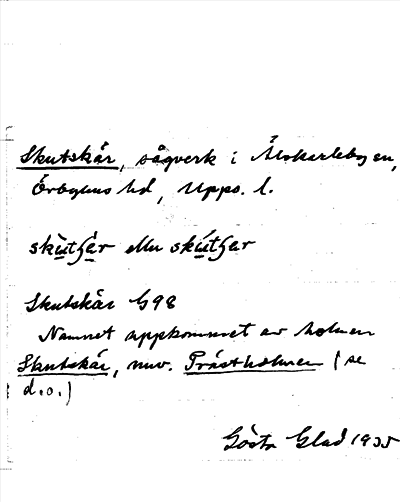 Skutskär, sågverk i Älvkarleby sn,
Örbyhus hd, Upps. l.
skùtʃä̀r eller skútʃär
Skutskär G98
Namnet uppkommet av holmen
Skutskär, nuv. Prästholmen (se
d.o.)
Gösta Glad 1935